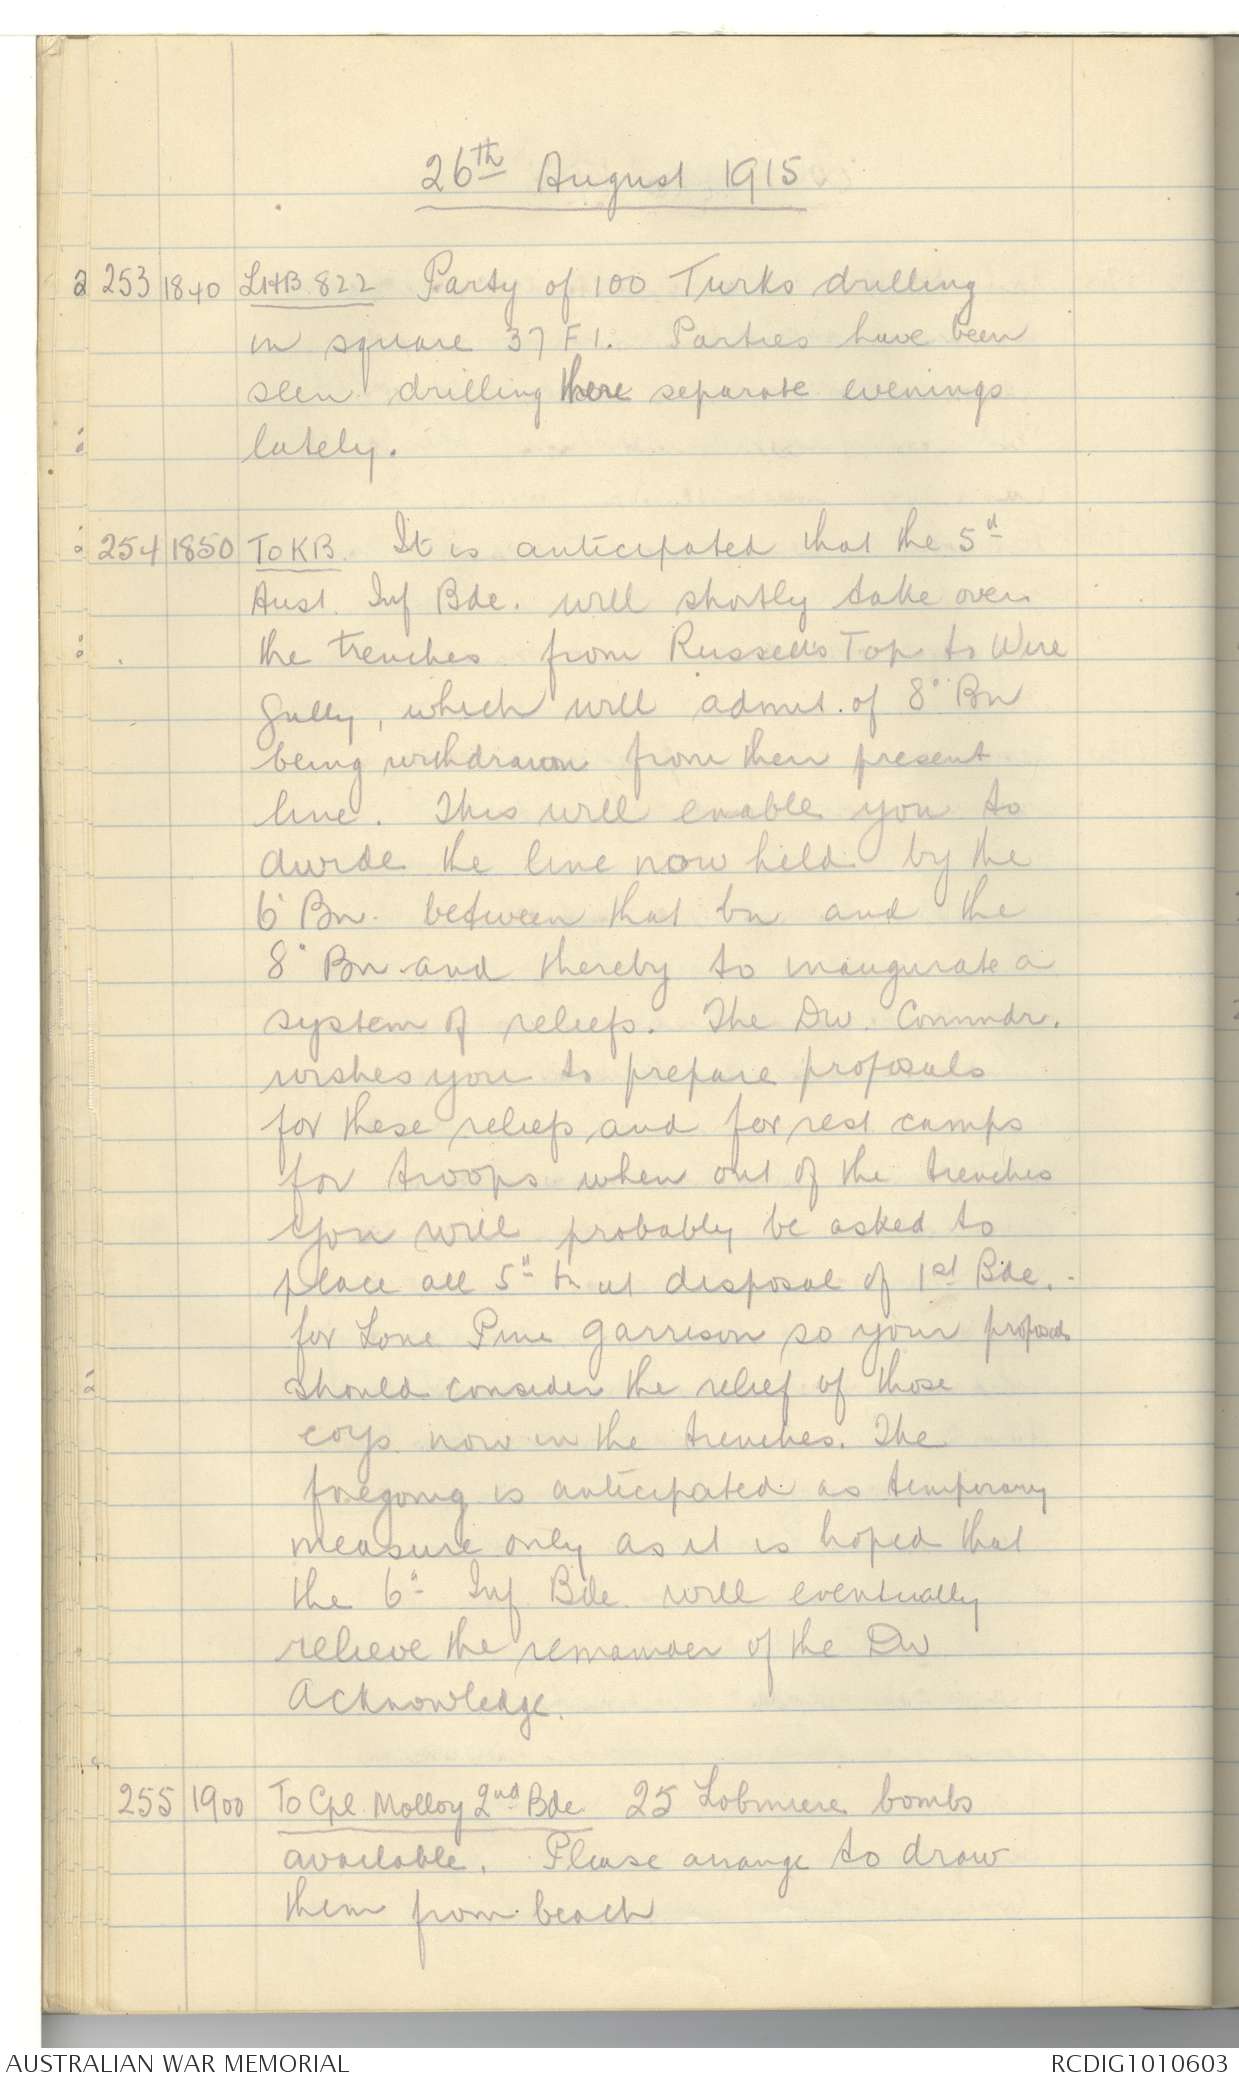 26th August 1915
253 1840 LHB 822 Party of 100 Turks drilling
in square 37 F 1. Parties have been
seen drilling there separate evenings
lately.
254 1850 To KB. It is anticipated that the 5th
Aust. Inf Bde. will shortly take over
the trenches from Russells Top to Wire
Gully, which will admit of 8° Bn
being withdrawn from their present
line. This will enable you to
divide the line now held by the
6° Bn. between that bn and the
8° Bn and thereby to inaugurate a
system of reliefs. The Div. Commdr.
wishes you to prepare proposals
for these reliefs and for rest camps
for troops when out of the trenches
You will probably be asked to
place all 5th bn at disposal of 1st Bde.
for Lone Pine garrison so your proposals
should consider the relief of those
coys now in the trenches. The
foregoing is anticipated as temporary
measure only as it is hoped that
the 6th Inf Bde will eventually
relieve the remainder of the Div
Acknowledge.
255 1900 To Cpl. Molloy 2nd Bde 25 Lobmiere bombs
available. Please arrange to draw
them from beach
AUSTRALIAN WAR MEMORIAL
RCDIG1010603